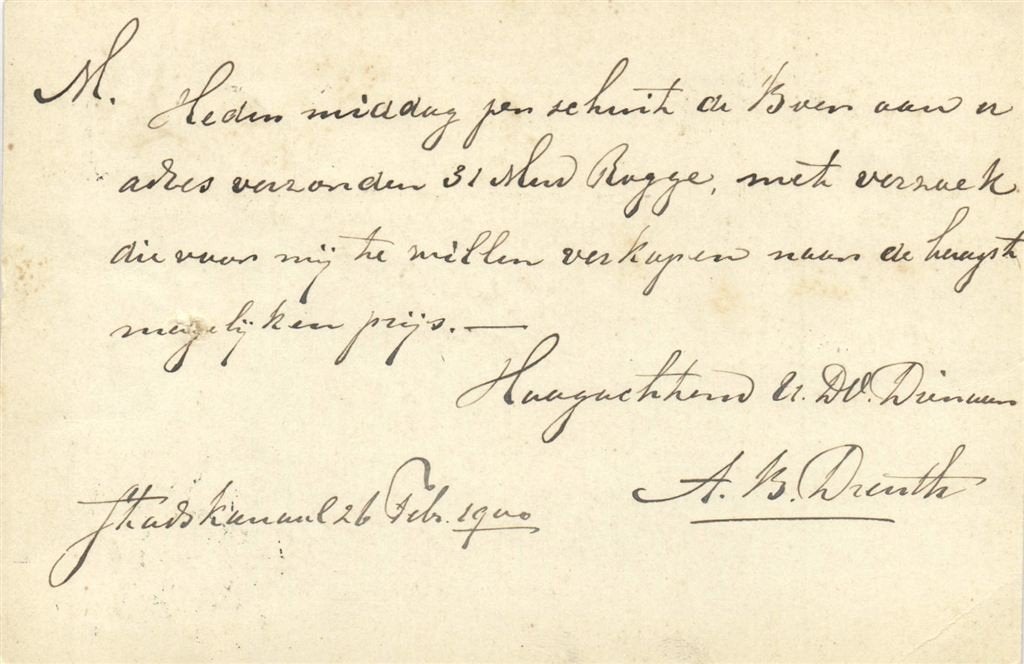 M.
Heden middag per schuit de Boer aan u
adres verzonden 31 Mud Rogge, met verzoek
die voor mij te willen verkopen naar de hoogst
mogelijken prijs. —
Hoogachtend U. DV. Dienaar
A. B. Drenth
Stadskanaal 26 Febr. 1900